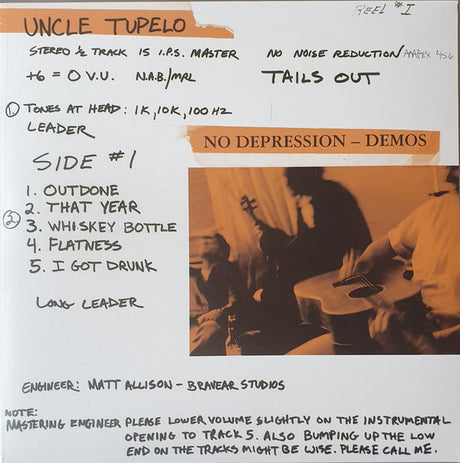 REEL #1
UNCLE TUPELO
STEREO ½ TRACK 15 I.P.S. MASTER NO NOISE REDUCTION AMPEX 456
+6 = 0 V.U. N.A.B./MRL TAILS OUT
1. TONES AT HEAD: 1K, 10K, 100 HZ
LEADER
NO DEPRESSION – DEMOS
SIDE #1
1. OUTDONE
2. THAT YEAR
2. 3. WHISKEY BOTTLE
4. FLATNESS
5. I GOT DRUNK
LONG LEADER
ENGINEER: MATT ALLISON – BRAVEAR STUDIOS
NOTE:
MASTERING ENGINEER PLEASE LOWER VOLUME SLIGHTLY ON THE INSTRUMENTAL
OPENING TO TRACK 5. ALSO BUMPING UP THE LOW
END ON THE TRACKS MIGHT BE WISE. PLEASE CALL ME.